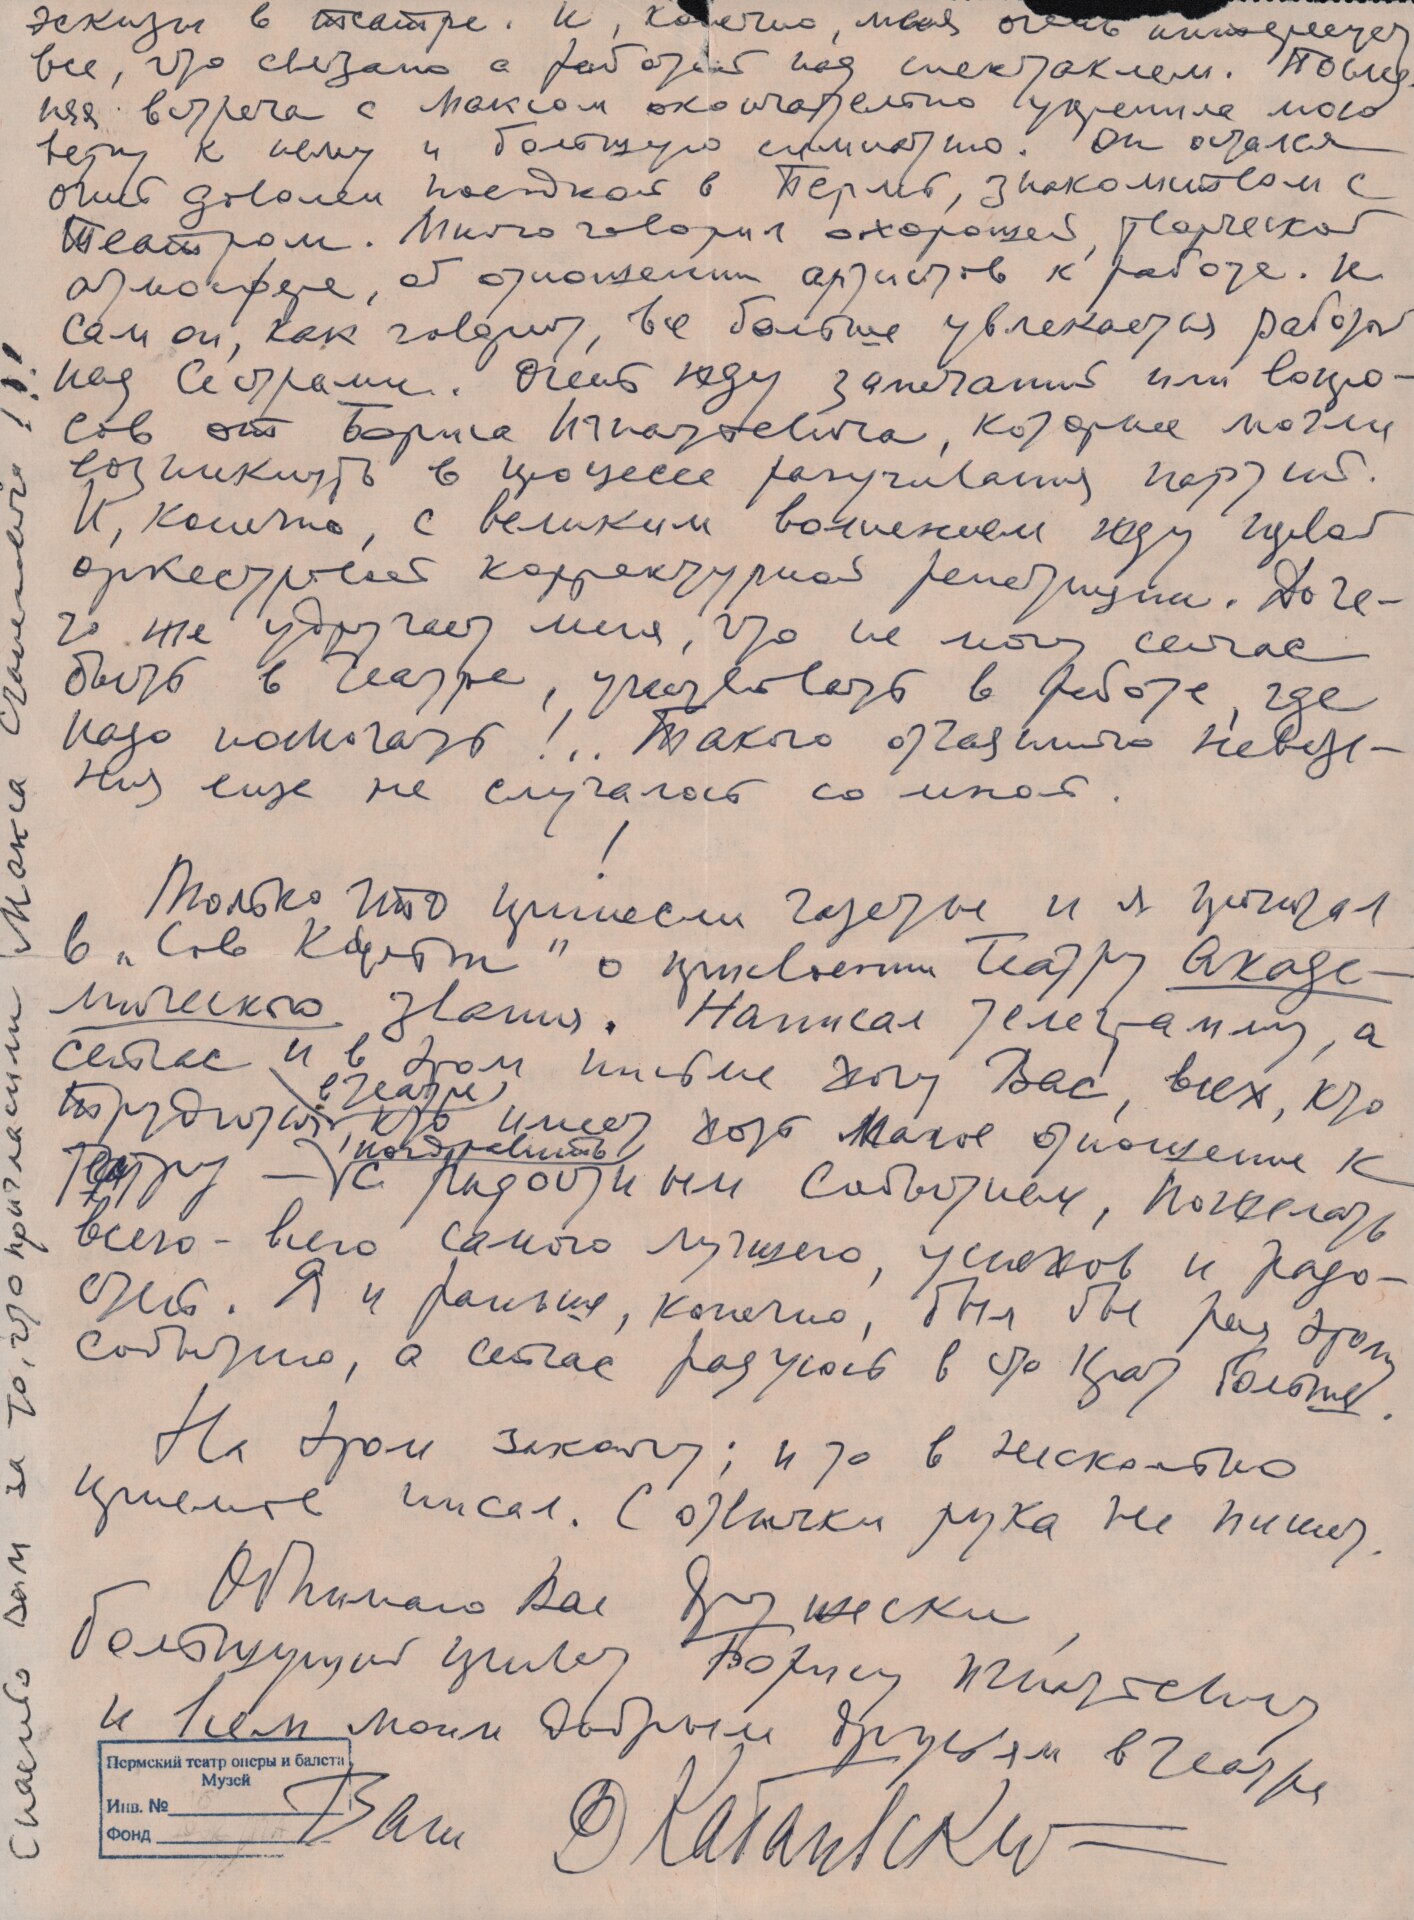 эскизы в театре. И, конечно, меня очень интересует
все, что связано с работой над спектаклем. Послед-
няя встреча с Максом окончательно укрепила мою
веру к нему и большую симпатию. Он остался
очень доволен поездкой в Пермь, знакомством с
Театром. Много говорил о хорошей, творческой
атмосфере, об отношении артистов к работе. И
сам он, как говорит, все больше увлекается работой
над Сестрами. Очень жду замечаний или вопро-
сов от Бориса Игнатьевича, которые могли
возникнуть в процессе разучивания партий.
И, конечно, с великим волнением жду первой
оркестровой корректурной репетиции. До че-
го же удручает меня, что не могу сейчас
быть в театре, участвовать в работе, где
надо помогать!.. Такого отчаянного невезе-
ния еще не случалось со мной.
!
Только что принесли газеты и я прочитал
в „Сов Культуре" о присвоении Театру Акаде-
мического звания. Написал телеграмму, а
сейчас и в этом письме хочу Вас, всех, кто
трудится в театре, кто имеет хоть малое отношение к
Театру — поздравить с радостным событием, пожелать
всего-всего самого лучшего, успехов и радо-
стей. Я и раньше, конечно, был бы рад этому
событию, а сейчас радуюсь в сто крат больше.
На этом закончу; и то в несколько
приемов писал. С отвычки рука не пишет.
Обнимаю Вас дружески,
большущий привет Борису Игнатьевичу
и всем моим добрым друзьям в театре
Ваш ДКабалевский
Спасибо Вам за то, что пригласили Макса Станиславовича!!!
Пермский театр оперы и балета
Музей
Инв. №
Фонд